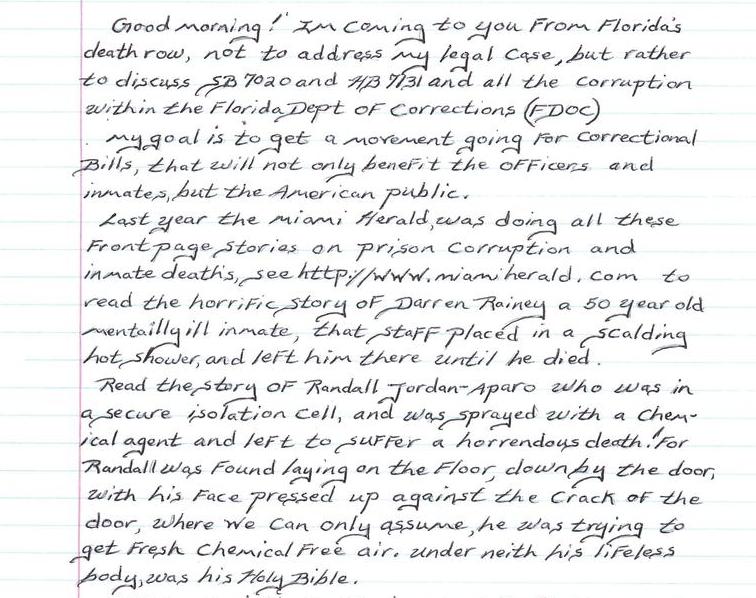 Good morning! Im coming to you From Florida's
death row, not to address my legal case, but rather
to discuss SB 7020 and HB 7131 and all the corruption
within the Florida Dept OF Corrections (FDOC)
. my goal is to get a movement going For correctional
Bills, that will not only beneFit the oFFicers and
inmates, but the American public.
Last year the miami Herald, was doing all these
Front page stories on prison corruption and
inmate death's, see http://www.miamiherald.com to
read the horriFic story OF Darren Rainey a 50 year old
mentailly ill inmate, that staFF placed in a scalding
hot shower, and leFt him there until he died.
Read the story OF Randall Jordan-Aparo who was in
a secure isolation cell, and was sprayed with a chem-
ical agent and leFt to suFFer a horrendous death! For
Randall was Found laying on the Floor, down by the door,
with his Face pressed up against the crack OF the
door, where we can only assume, he was trying to
get Fresh chemical Free air. under neith his liFeless
body, was his Holy Bible.